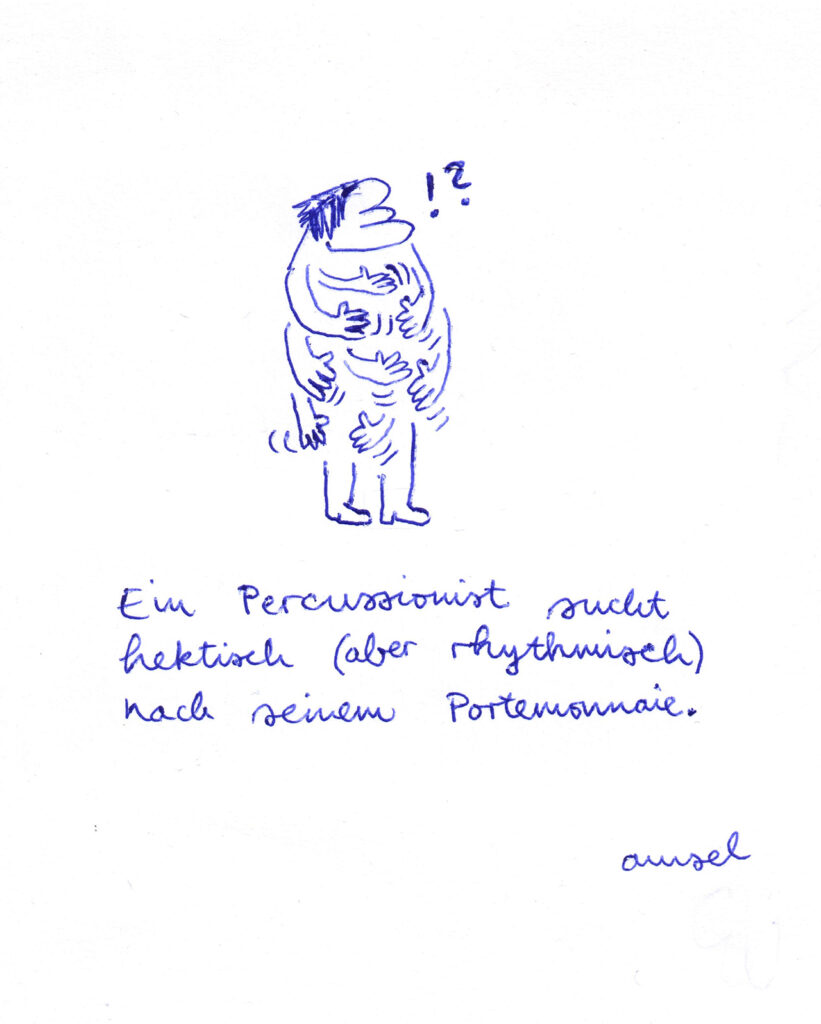 !?
Ein Percussionist sucht
hektisch (aber rhythmisch)
nach seinem Portemonnaie.
amsel